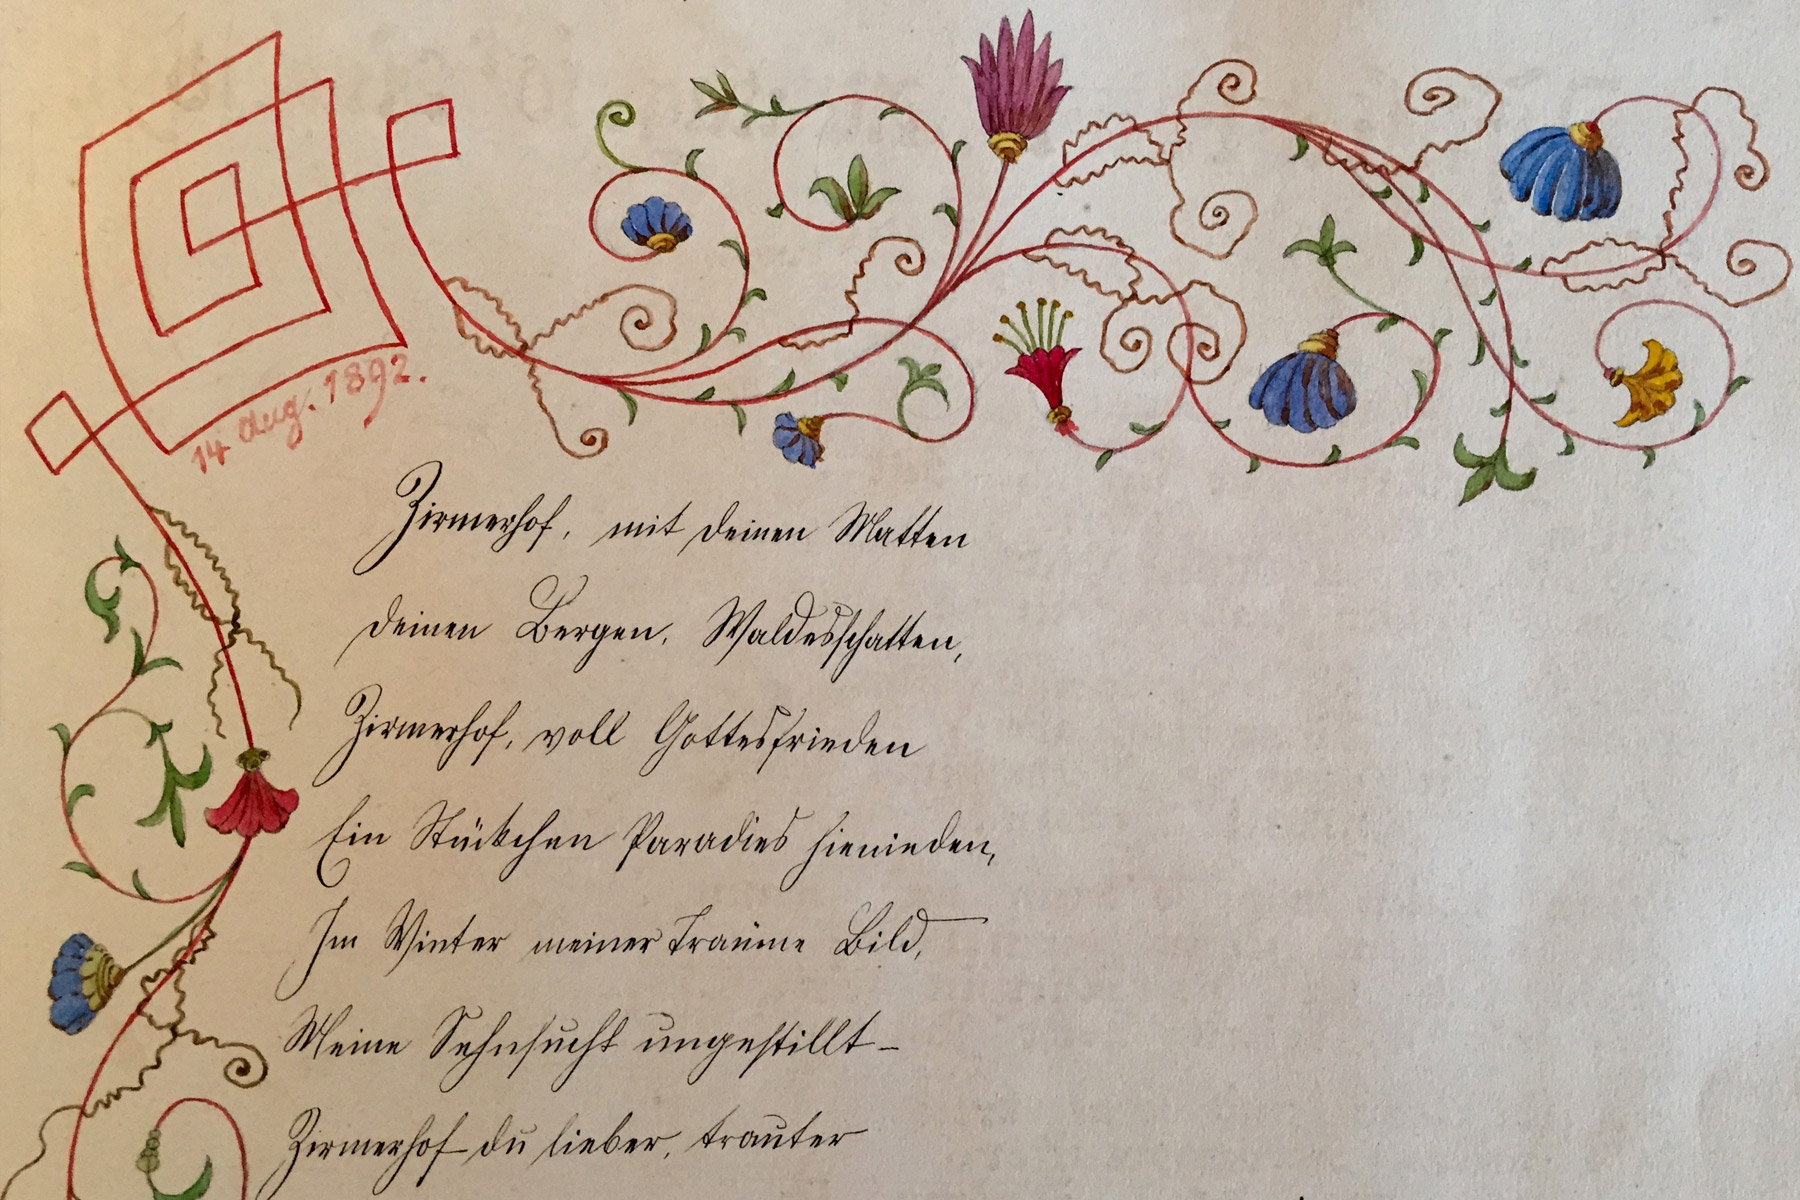 14 Aug. 1892.
Zirmerhof, mit deinen Matten
deinen Bergen, Waldesschatten,
Zirmerhof, voll Gottesfrieden
Ein Stückchen Paradies hienieden,
Im Winter meiner Träume Bild,
Meine Sehnsucht ungestillt –
Zirmerhof du lieber, trauter